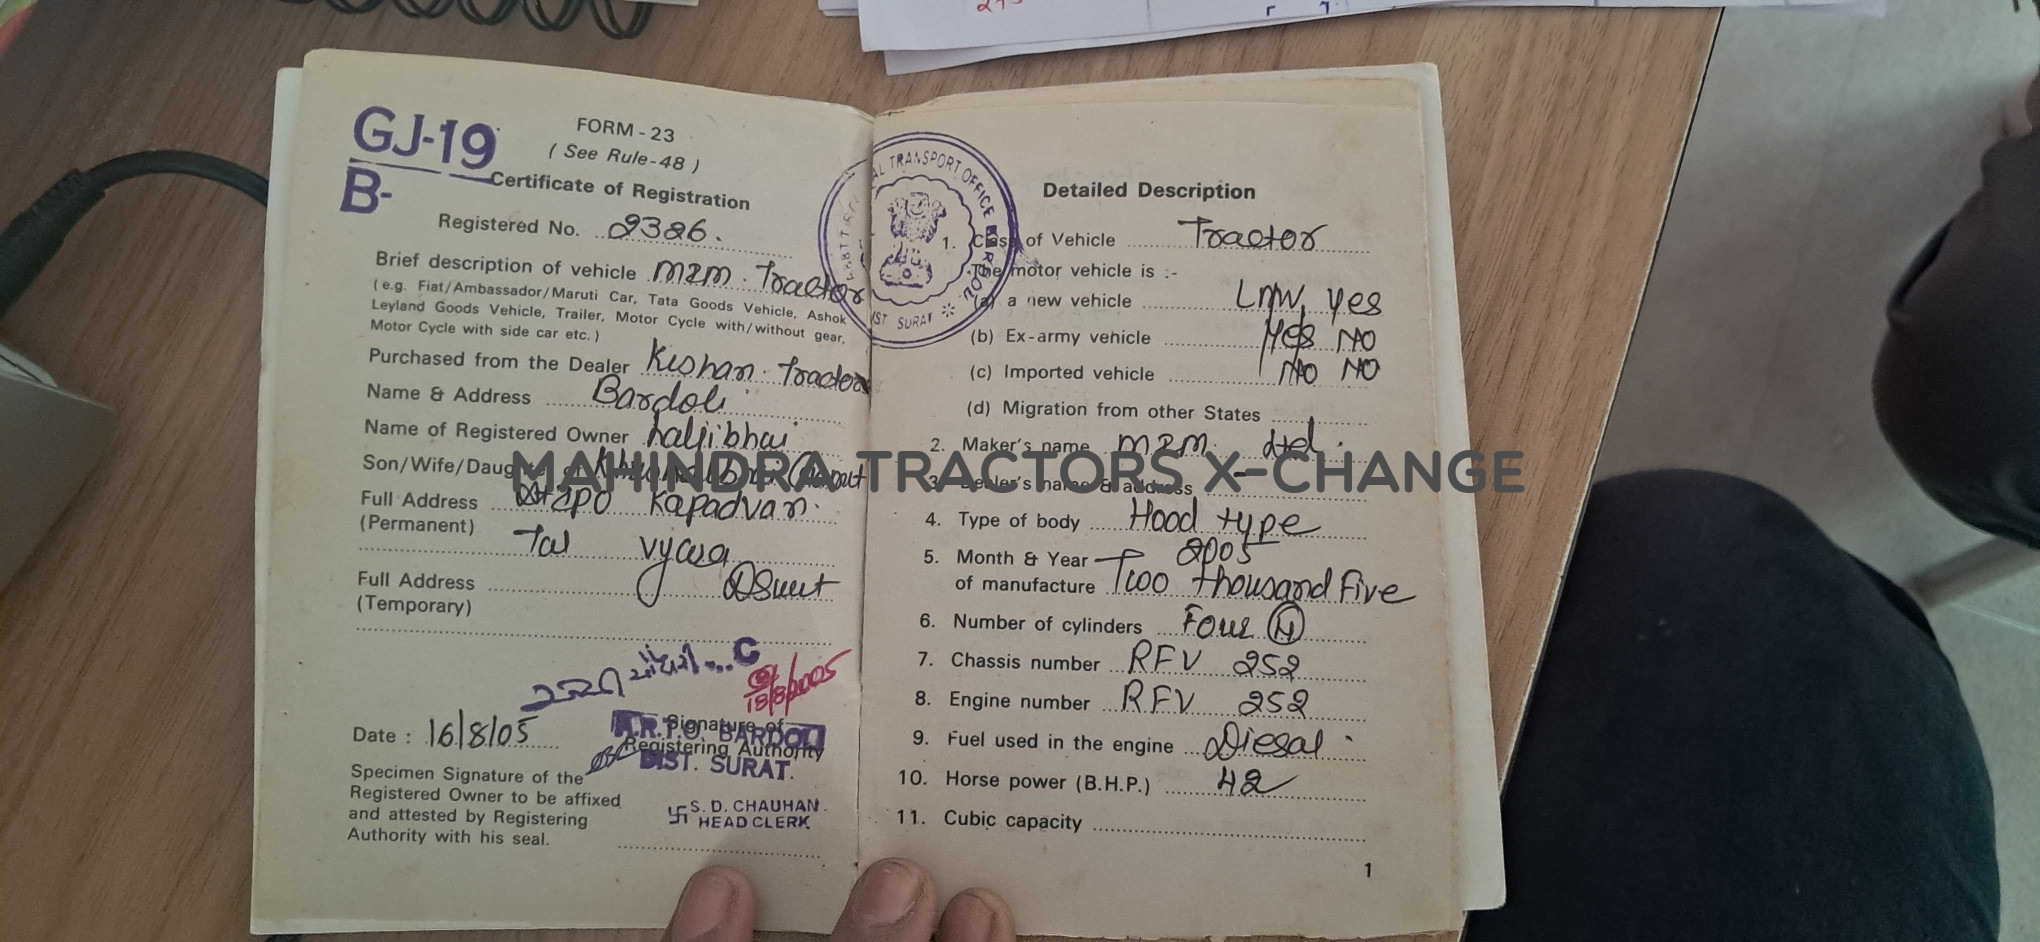 GJ-19
B-
FORM - 23
( See Rule-48 )
Certificate of Registration
Registered No. 2326.
Brief description of vehicle M&M. Tractor
( e.g. Fiat/Ambassador/Maruti Car, Tata Goods Vehicle, Ashok
Leyland Goods Vehicle, Trailer, Motor Cycle with/without gear,
Motor Cycle with side car etc. )
Purchased from the Dealer Kishan. Tractors
Name & Address Bardoli
Name of Registered Owner Laljibhai
Son/Wife/Daug
Full Address At &po Kapadvan.
(Permanent)
Tal vyara
Full Address DSurat
(Temporary)
C
18/8/2005
Date : 16/8/05
Signature of
Registering Authority
A.R.T.O. BARDOLI
DIST. SURAT.
Specimen Signature of the
Registered Owner to be affixed
and attested by Registering
Authority with his seal.
S. D. CHAUHAN.
HEAD CLERK
TRANSPORT OFFICE BARDOLI
DIST SURAT
Detailed Description
1. Class of Vehicle Tractor
The motor vehicle is :-
(a) a new vehicle LMV, Yes
(b) Ex-army vehicle Yes NO
(c) Imported vehicle NO NO
(d) Migration from other States
2. Maker's name M&M. Ltd.
3. Dealer's name & address
4. Type of body Hood type
5. Month & Year 2005
of manufacture Two thousand Five
6. Number of cylinders Four (4)
7. Chassis number RFV 252
8. Engine number RFV 252
9. Fuel used in the engine Diesal
10. Horse power (B.H.P.) 42
11. Cubic capacity
1
MAHINDRA TRACTORS X-CHANGE